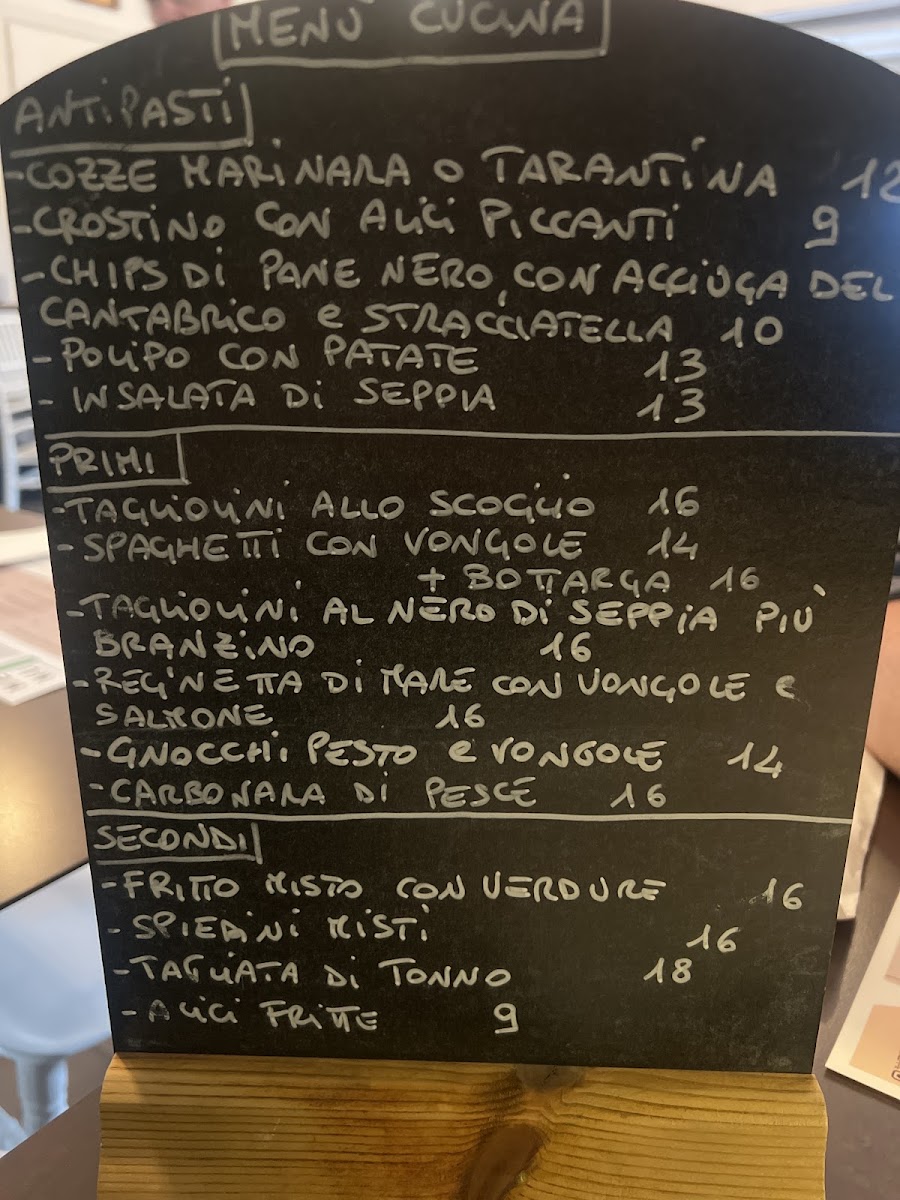 MENÙ CUCINA
ANTIPASTI
-COZZE MARINARA O TARANTINA 12
-CROSTINO CON ALICI PICCANTI 9
-CHIPS DI PANE NERO CON ACCIUGA DEL
CANTABRICO e STRACCIATELLA 10
- POLIPO CON PATATE 13
- INSALATA DI SEPPIA 13
PRIMI
-TAGLIOLINI ALLO SCOGLIO 16
-SPAGHETTI CON VONGOLE 14
+ BOTTARGA 16
-TAGLIOLINI AL NERO DI SEPPIA PIÙ
BRANZINO 16
-REGINETTA DI MARE CON VONGOLE e
SALMONE 16
-GNOCCHI PESTO e VONGOLE 14
-CARBONARA DI PESCE 16
SECONDI
-FRITTO MISTO CON VERDURE 16
- SPIEDINI MISTI 16
-TAGLIATA DI TONNO 18
- ALICI FRITTE 9